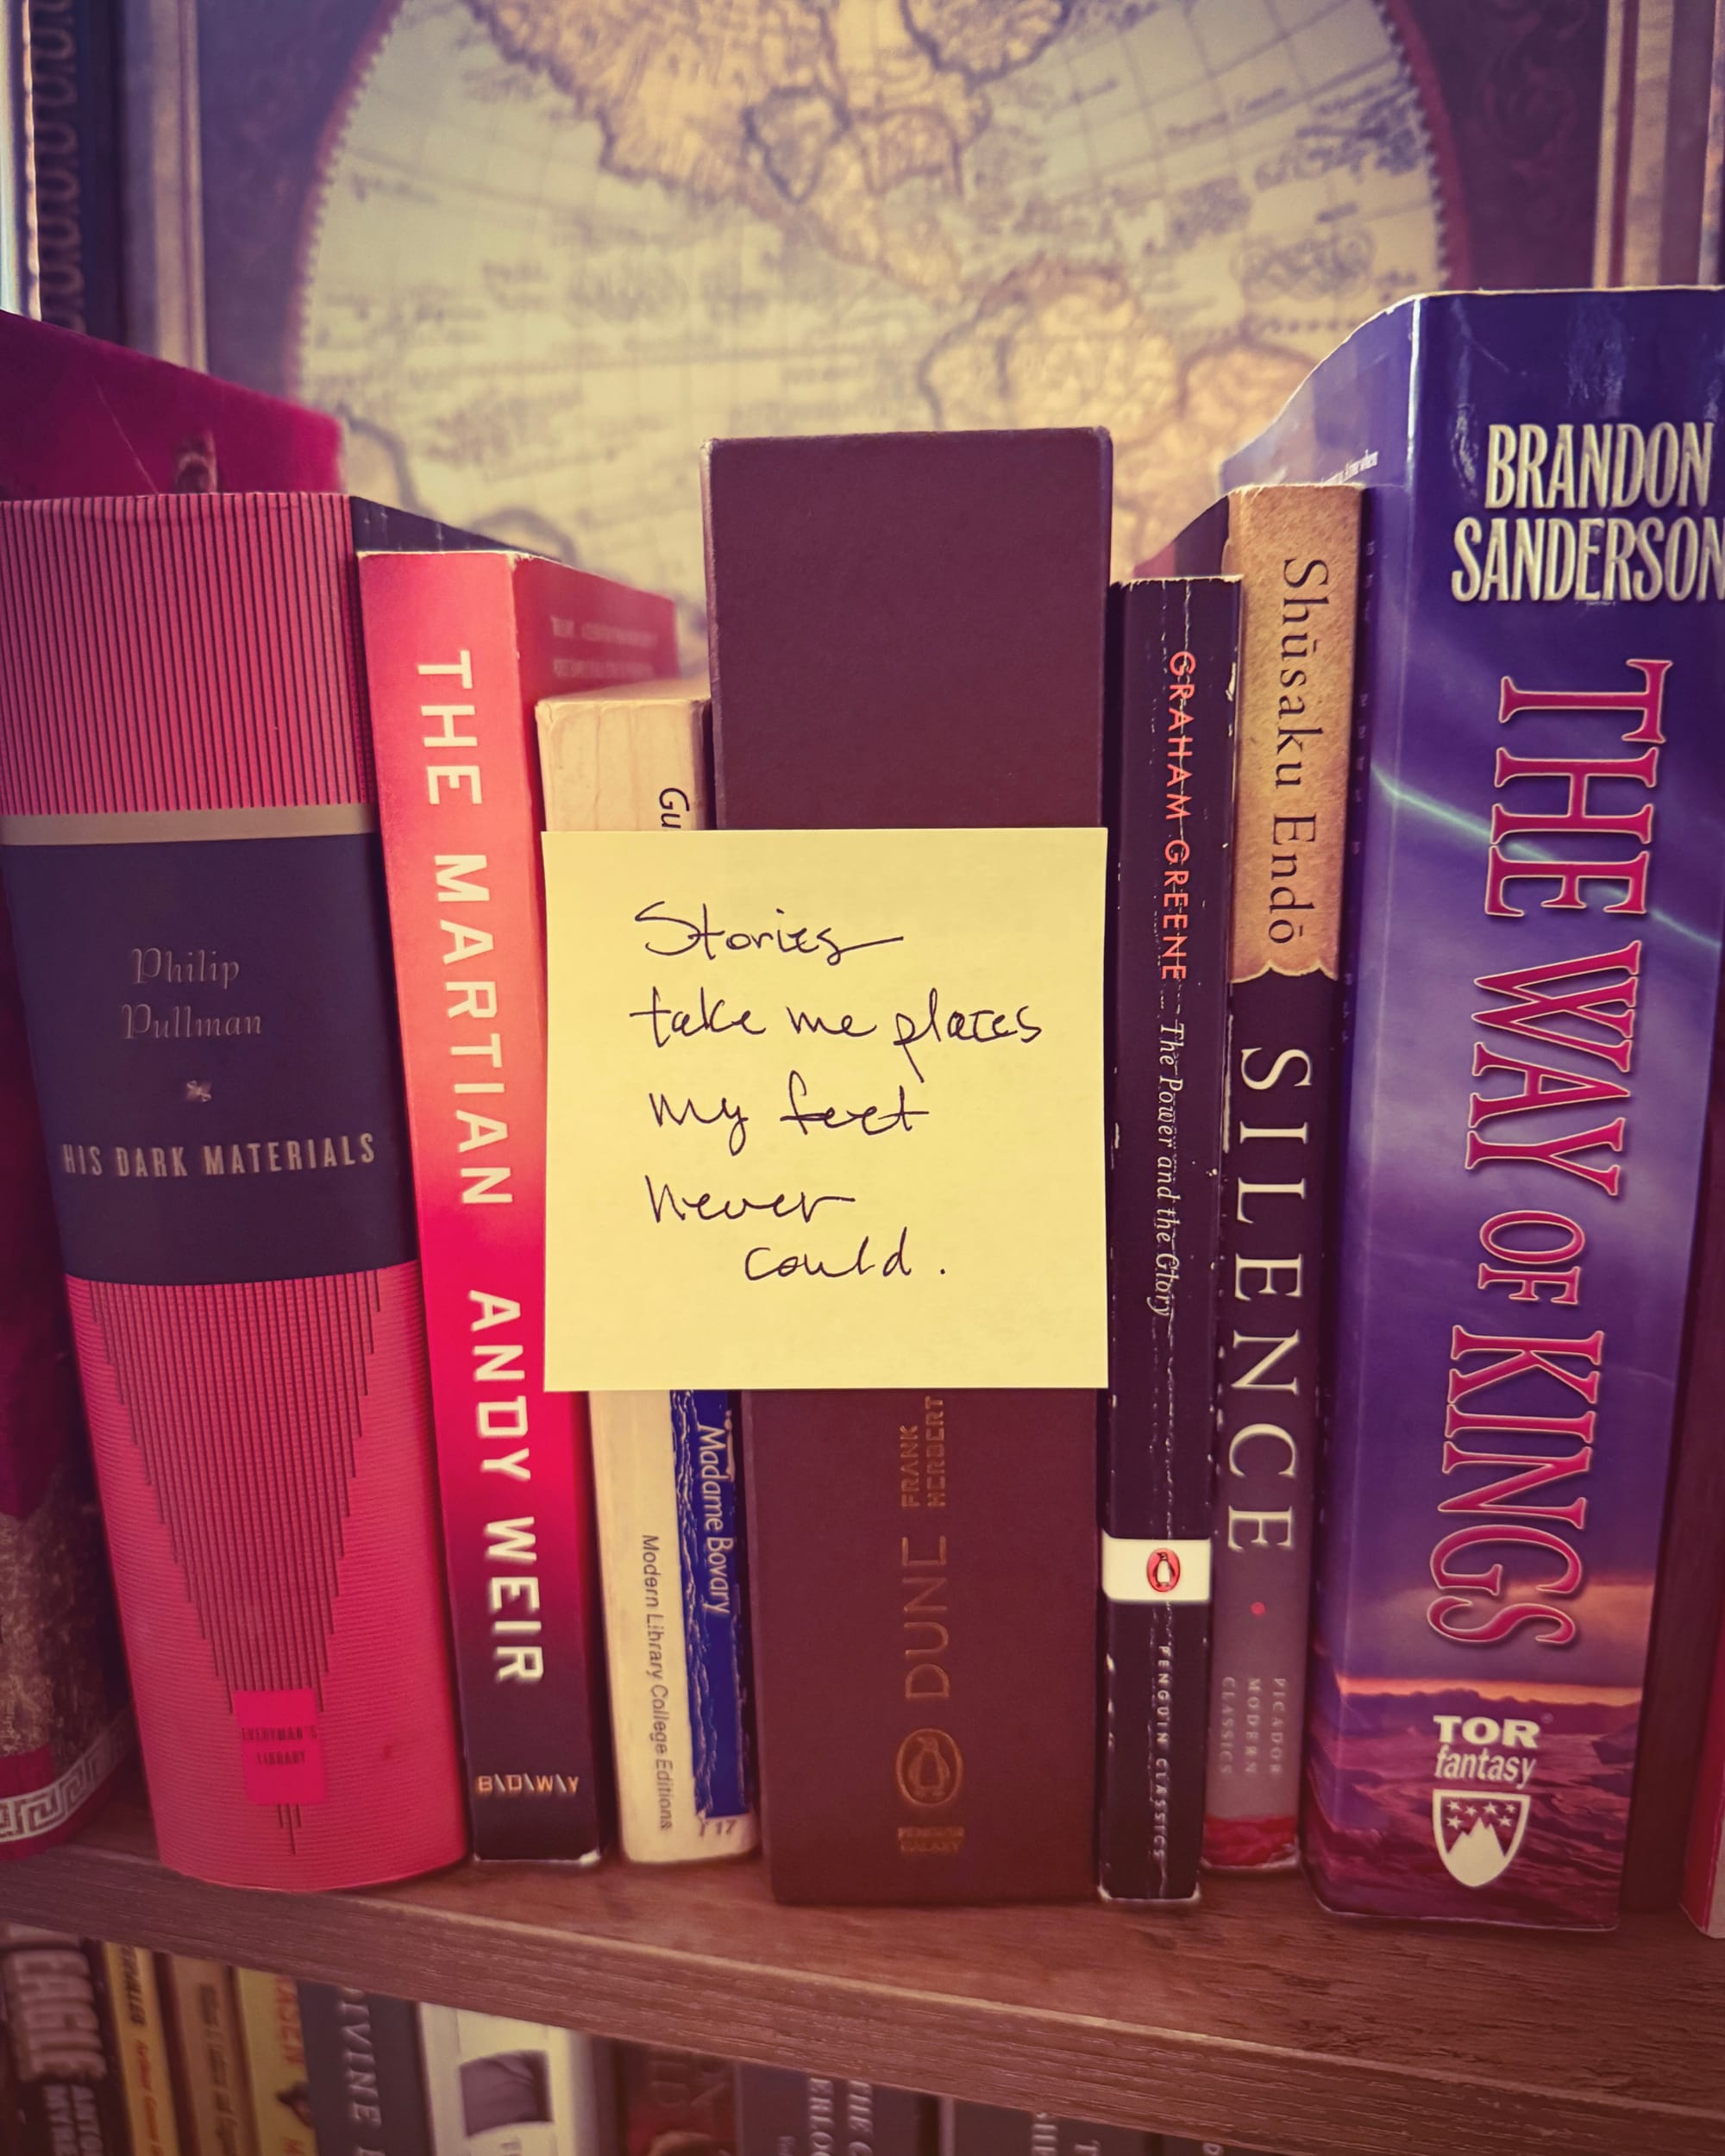 Philip
Pullman
HIS DARK MATERIALS
EVERYMAN'S
LIBRARY
THE MARTIAN ANDY WEIR
B\D\W\Y
Gu
Madame Bovary
Modern Library College Editions
T 17
Stories
take me places
my feet
never
could.
DUNE FRANK
HERBERT
GRAHAM GREENE The Power and the Glory
PENGUIN CLASSICS
Shūsaku Endō
SILENCE
PICADOR
MODERN
CLASSICS
BRANDON
SANDERSON
THE WAY OF KINGS
TOR
fantasy
EAGLE